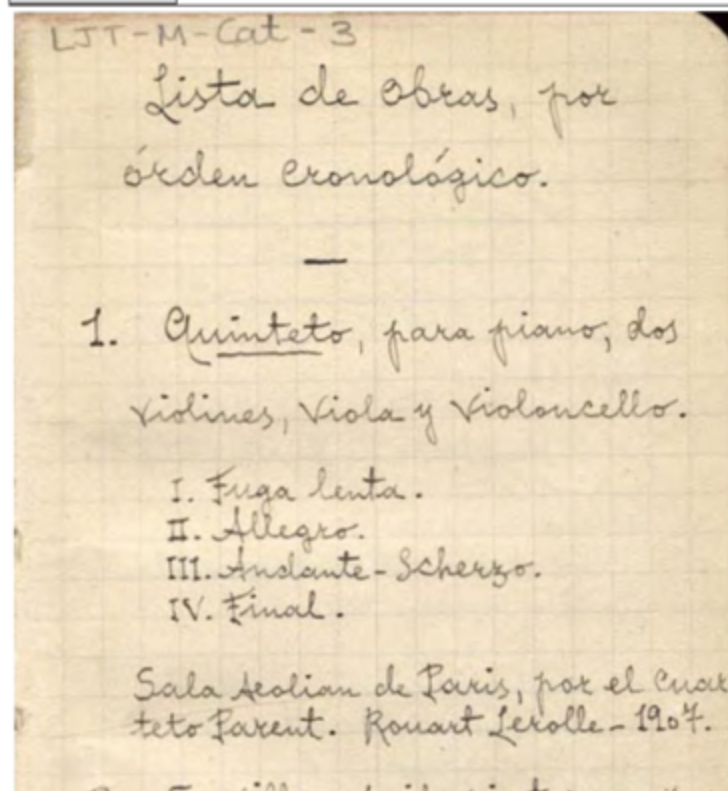 LJT-M-Cat-3
Lista de obras, por
órden cronológico.
—
1. Quinteto, para piano, dos
violines, viola y violoncello.
I. Fuga lenta.
II. Allegro.
III. Andante-Scherzo.
IV. Final.
Sala Aeolian de Paris, por el cuar
teto Parent. Rouart Lerolle-1907.